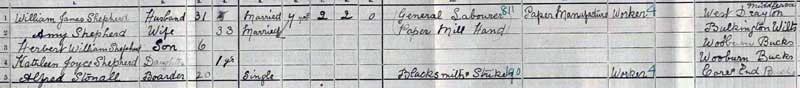 1 William James Shepherd Husband 31 Married 7 yrs 2 2 0 General Labourer 811 Paper Manufacture Worker 4 West Drayton Middlesex
2 Amy Shepherd Wife 33 Married Paper Mill Hand Bulkington Wilts
3 Herbert William Shepherd Son 6 Wooburn Bucks
4 Kathleen Joyce Shepherd Daughter 1 yr Wooburn Bucks
5 Alfred Stonall Boarder 20 Single Blacksmith's Striker 190 Worker 4 End Bucks